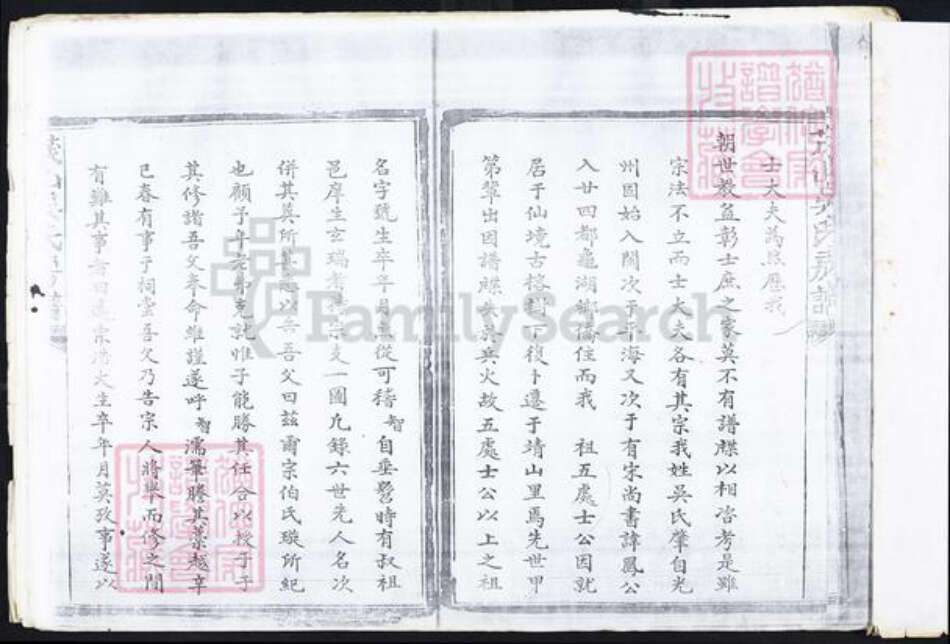 士大夫為然歷我
朝世教益彰士庶之家莫不有譜牒以相咨考是雖
宗法不立而士大夫各有其宗我姓吳氏肇自光
州固始入閩次于于海又次于有宋尚書諱鳳公
入廿四都龜湖鄉僑住而我 祖五處士公因就
居于仙境古榕樹下後卜遷于靖山里焉先世甲
第輩出因譜牒失於兵火故五處士公以上之祖
名字號生卒年月無從可稽智自垂髫時有叔祖
邑庠生玄瑞者 宗支一圖凡錄六世先人名次
併其墓所 以告吾父曰茲爾宗伯氏璇所紀
也顧予年 弗克就惟子能勝其任合以授子于
其修諸吾父奉命維謹遂呼智濡筆謄其藁越辛
巳春有事于祠堂吾父乃告宗人將舉而修之間
有難其事 曰遠宗浩大生卒年月莫攷事遂以
FamilySearch